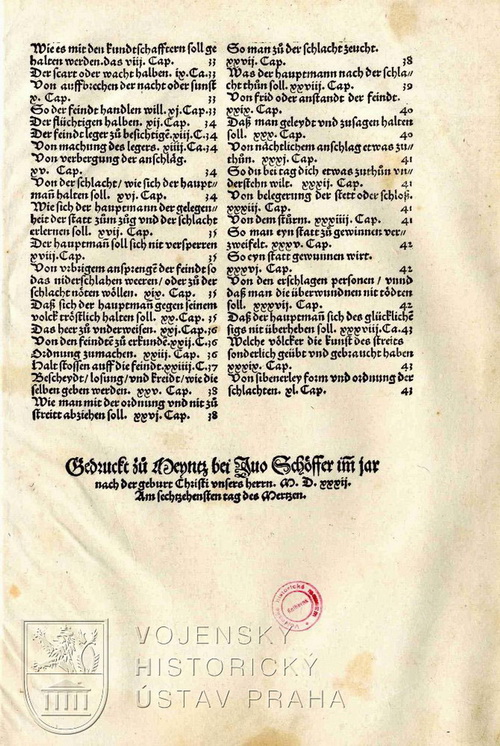 Wie es mit den kundtschafftern soll ge
halten werden. das viij. Cap. 33
Der scart oder wacht halben. ix. Ca. 33
Von auffbrechen der nacht oder sunst
x. Cap. 33
So der feindt handlen will. xj. Cap. 33
Der flüchtigen halben. xij. Cap. 34
Der feindt leger zů besichtigē. xiij. C. 34
Von machung des legers. xiiij. Ca. 34
Von verbergung der anschläg.
xv. Cap. 34
Von der schlacht / wie sich der haupt⸗
mañ halten soll. xvj. Cap. 34
Wie sich der hauptmann der gelegen⸗
heit der statt zům züg vnd der schlacht
erlernen soll. xvij. Cap. 35
Der hauptmañ soll sich nit versperren
xviij. Cap. 35
Von vrbrigem ansprengē der feindt so
das niderschlahen weeren / oder zů der
schlacht nöten wöllen. xix. Cap. 35
Daß sich der hauptmañ gegen seinem
volck tröstlich halten soll. xx. Cap. 35
Das heer zů vnderweisen. xxj. Cap. 36
Von den feindtē zů erkundē. xxij. C. 36
Ordnung zůmachen. xxiij. Cap. 36
Halt stossen auff die feindt. xxiiij. C. 37
Bescheydt / losung / vnd kreidt / wie die
selben geben werden. xxv. Cap. 38
Wie man mit der ordnung vnd nit zů
streitt abziehen soll. xxvj. Cap. 38
So man zů der schlacht zeucht.
xxvij. Cap. 38
Was der hauptmann nach der schla⸗
cht thůn soll. xxviij. Cap. 39
Von frid oder anstandt der feindt.
xxix. Cap. 40
Daß man geleydt vnd zůsagen halten
soll. xxx. Cap. 40
Von nächtlichem anschlag etwas zu⸗
thůn. xxxj. Cap. 41
So du bei tag dich etwas zuthůn vn⸗
derstehn wilt. xxxij. Cap. 41
Von belegerung der stett oder schloß.
xxxiij. Cap. 41
Von dem stürm. xxxiiij. Cap. 41
So man eyn statt zů gewinnen ver⸗
zweifelt. xxxv. Cap. 42
So eyn statt gewunnen wirt.
xxxvj. Cap. 42
Von den erschlagen personen / vnnd
daß man die überwundnen nit tödten
soll. xxxvij. Cap. 42
Daß der hauptmañ sich des glücklichē
sigs nit überheben soll. xxxviij. Ca. 43
Welche völcker die kunst des streits
sonderlich geübt vnd gebraucht haben
xxxix. Cap. 43
Von sibenerley form vnd ordnung der
schlachten. xl. Cap. 43
Gedruckt zů Meyntz bei Juo Schöffer im̃ jar
nach der geburt Christi vnsers herrn. M. D. xxxij.
Am sechtzehensten tag des Mertzen.
VOJENSKÝ
HISTORICKÝ
ÚSTAV PRAHA